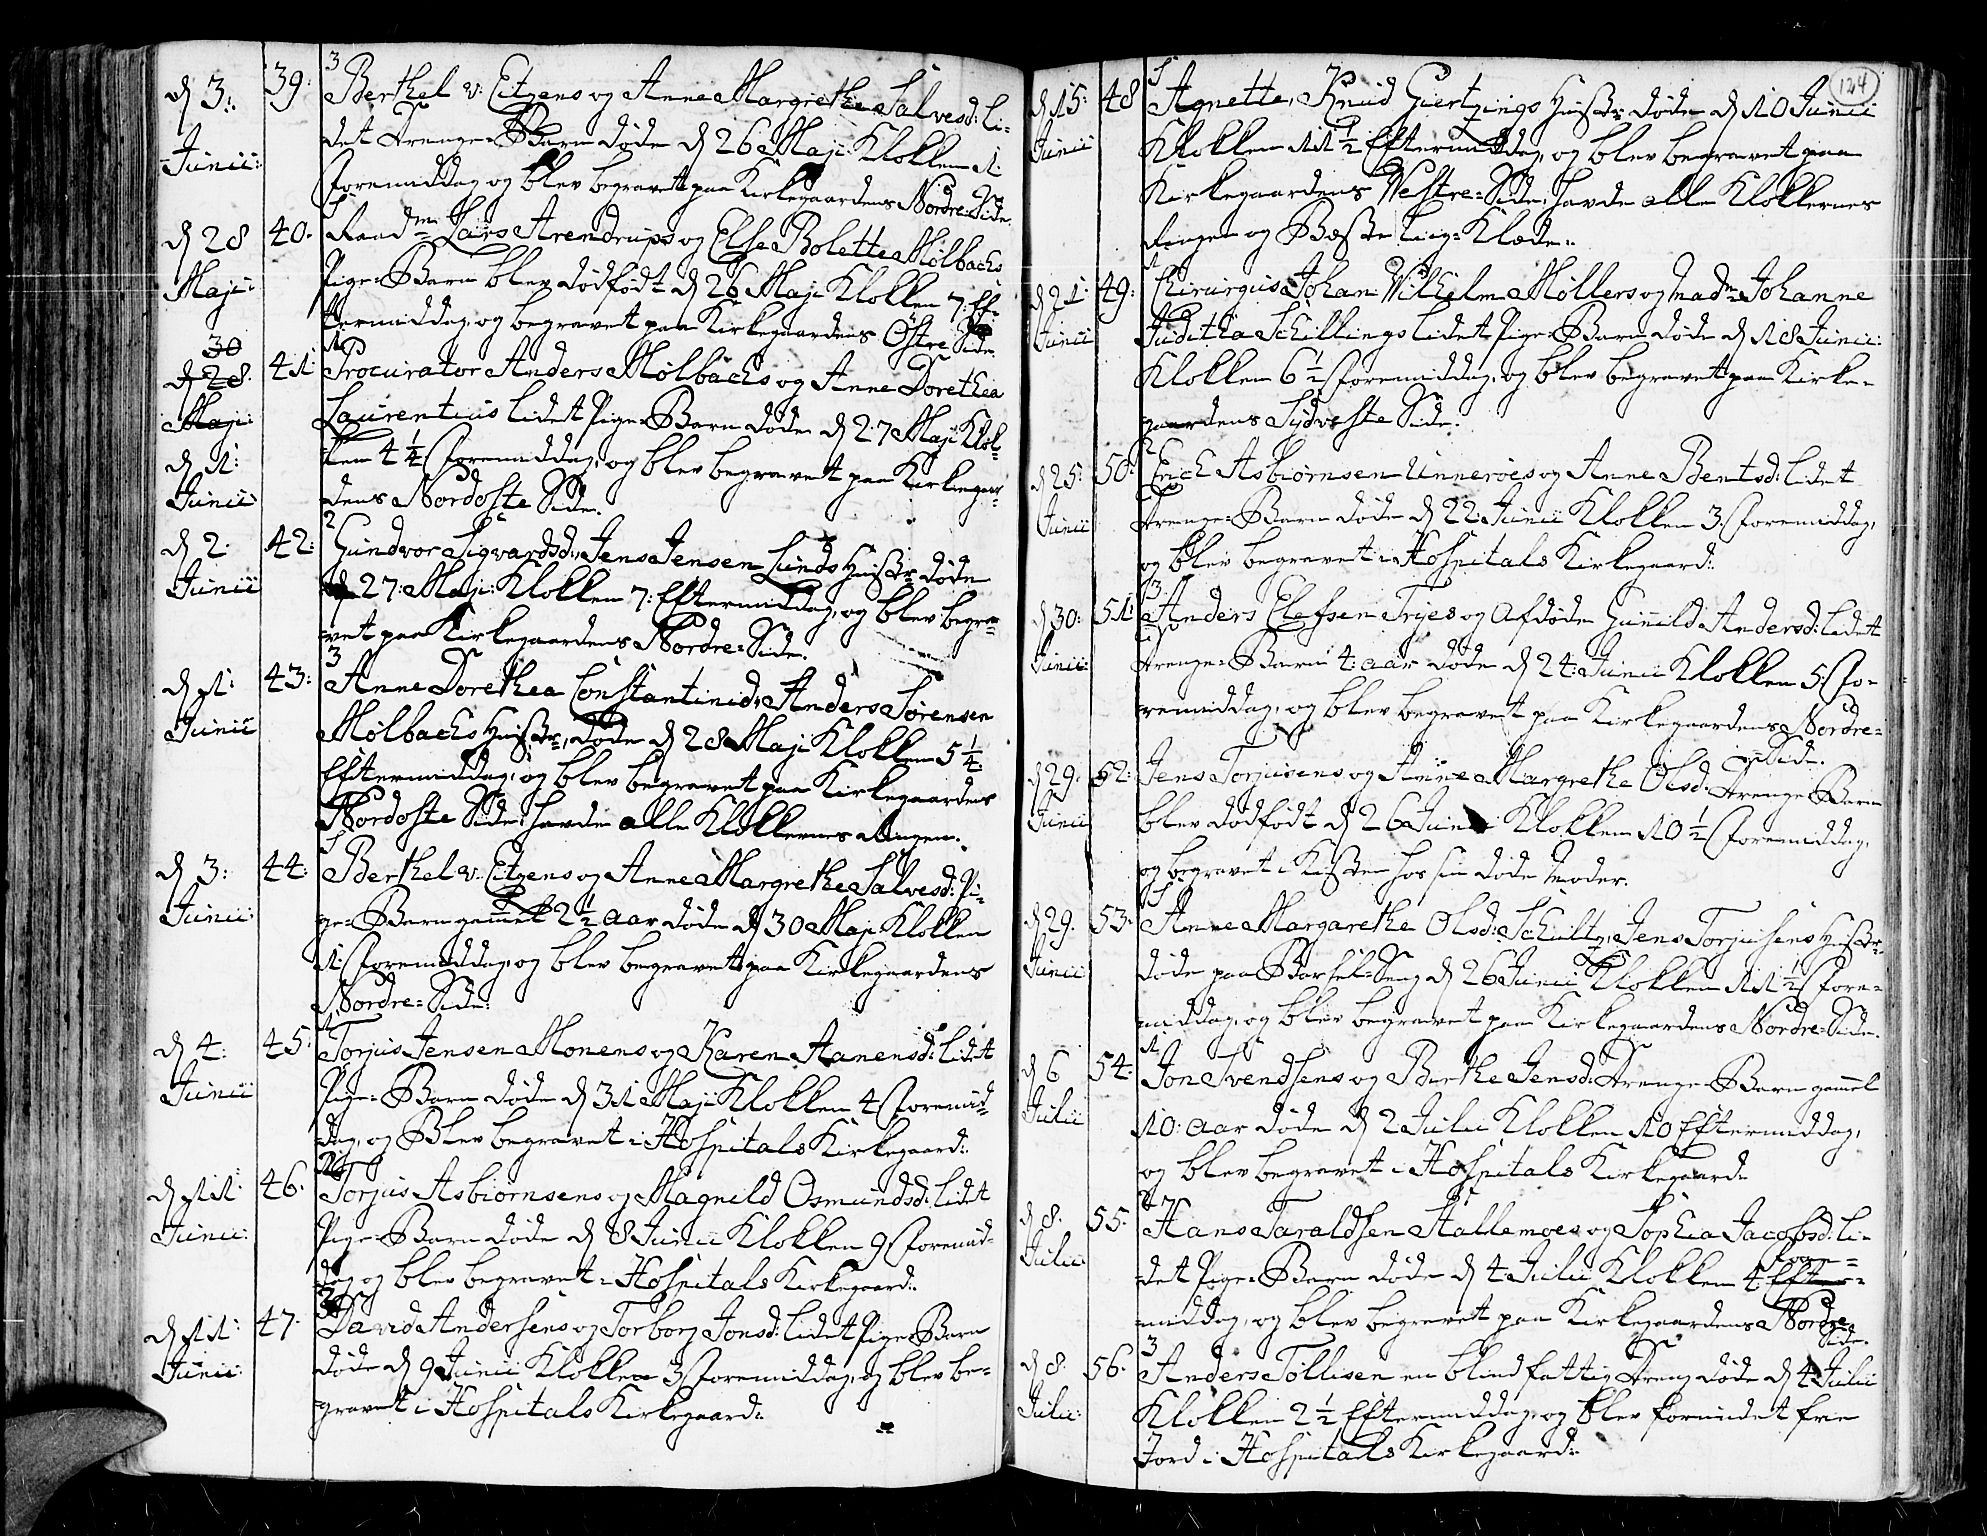 d 3: Junii: 39: 3
Berthel v: Eitzens og Anne Margrethe Salvesd: li-
det Drenge-Barn døde d 26 Maji Klokken 1:
Formiddag og blev begravet paa Kirkegaardens Nordre Side.
d 28 Maji: 40: 1
Raadm Lars Arendrups og Else Bolette Mølbachs
Pige-Barn blev dødfødt d 26 Maji Klokken 7: Ef-
termiddag, og begravet paa Kirkegaardens Østre Side
30 d 28: Maji: d 1: Junii 41: 1
Procurator Anders Mølbachs og Anne Dorethea
Laurentius lidet Pige-Barn døde d 27 Maji Klok-
ken 4 1/4 Formiddag, og blev begravet paa Kirkegaar-
dens Nordoste Side.
d 2: Junii 42: 2
Gundvor Sigvardsd:, Jens Jensen Lunds Hustr: døde
d 27: Maji: Klokken 7: Eftermiddag, og blev begra-
vet paa Kirkegaardens Nordre-Side.
d 1: Junii 43: 3
Anne Dorethea Constantinid:, Anders Sørensen
Mølbachs Hustr:, døde d 28 Maji Klokken 5 1/4:
Eftermiddag, og blev begravet paa Kirkegaardens
Nordoste Side, havde alle Klokkernes Ringen:
d 3: Junii: 44: 1
Berthel v: Eitzens og Anne Margrethe Salvesd: Pi-
ge-Barn gammel 2 1/2 aar døde d 30 Maji Klokken
1: Formiddag, og blev begravet paa Kirkegaardens
Nordre-Side:
d 4: Junii 45: 1
Torjus Jensen Monens og Karen Aanensd: lidet
Pige-Barn døde d 31 Maji Klokken 4 Formid-
dag, og Blev begravet i Hospitals Kirkegaard:
d 11: Junii: 46:
Torjus Asbiørnsens og Magnild Osmundsd: lidet
Pige-Barn døde d 8 Junii Klokken 9 Formid-
dag og blev begravet i Hospitals Kirkegaard:
d 11: Junii: 47: 2
David Andersens og Torborg Jonsd: lidet Pige-Barn
døde d 9 Junii Klokken 3 Formiddag, og blev be-
gravet i Hospitals Kirkegaard:
124
d 15: Junii 48 1
Agnette, Knud Giertzings Hustr: døde d 10 Junii
Klokken 11 1/2 Eftermiddag, og blev begravet paa
Kirkegaardens Vestre-Side, havde alle Klokkernes
Ringen og Beste Liig-Klæde:
d 21: Junii 49: 1
Chirurgus Johan Wilhelm Møllers og Madm Johanne
Juditha Schillings lidet Pige-Barn døde d 18 Junii:
Klokken 6 1/2 Formiddag, og blev begravet paa Kirke-
gaardens Sydveste Side.
d 25: Junii 50: 2
Erich Asbiørnsen Unneroes og Anne Bentsd: lidet
Drenge-Barn døde d 22: Junii Klokken 3: Formiddag,
og blev begravet i Hospitals Kirkegaard:
d 30: Junii: 51: 3
Anders Elefsen Tryes og Afdøde Gunild Andersd: lidet
Drenge-Barn 4: aar døde d 24: Junii Klokken 5: Fo-
remiddag, og blev begravet paa Kirkegaardens Nordre-
Side.
d 29: Junii 52:
Jens Torjusens og Anne Margrethe Olsd: Drenge Barn
blev dødfødt d 26 Junii Klokken 10 1/2 Formiddag,
og begravet i Kisten hos sin døde Moder.
d 29: Junii 53: 1
Anne Margarethe Olsd: Schultz, Jens Torjusens Hustr:
døde paa Barsel-Seng d 26 Junii Klokken 11 1/2 Fore-
middag, og blev begravet paa Kirkegaardens Nordre-Side.
d 6 Julii 54: 1
Jon Svendsens og Berthe Jensd: Drenge-Barn gamel
10: aar døde d 2 Julii Klokken 10 Eftermiddag,
og blev begravet i Hospitals Kirkegaard
d 8: Julii 55: 2
Hans Taraldsen Stallemoes og Sophia Jacobsd: li-
det Pige-Barn døde d 4 Julii Klokken 4: Efter- For-
middag, og blev begravet paa Kirkegaardens Nordre
Side.
d 8: Julii: 56: 3
Anders Tollisen en blind fattig Dreng døde d 4 Julii
Klokken 2 1/2 Eftermiddag, og blev forundet frie
Jord i Hospitals Kirkegaard: